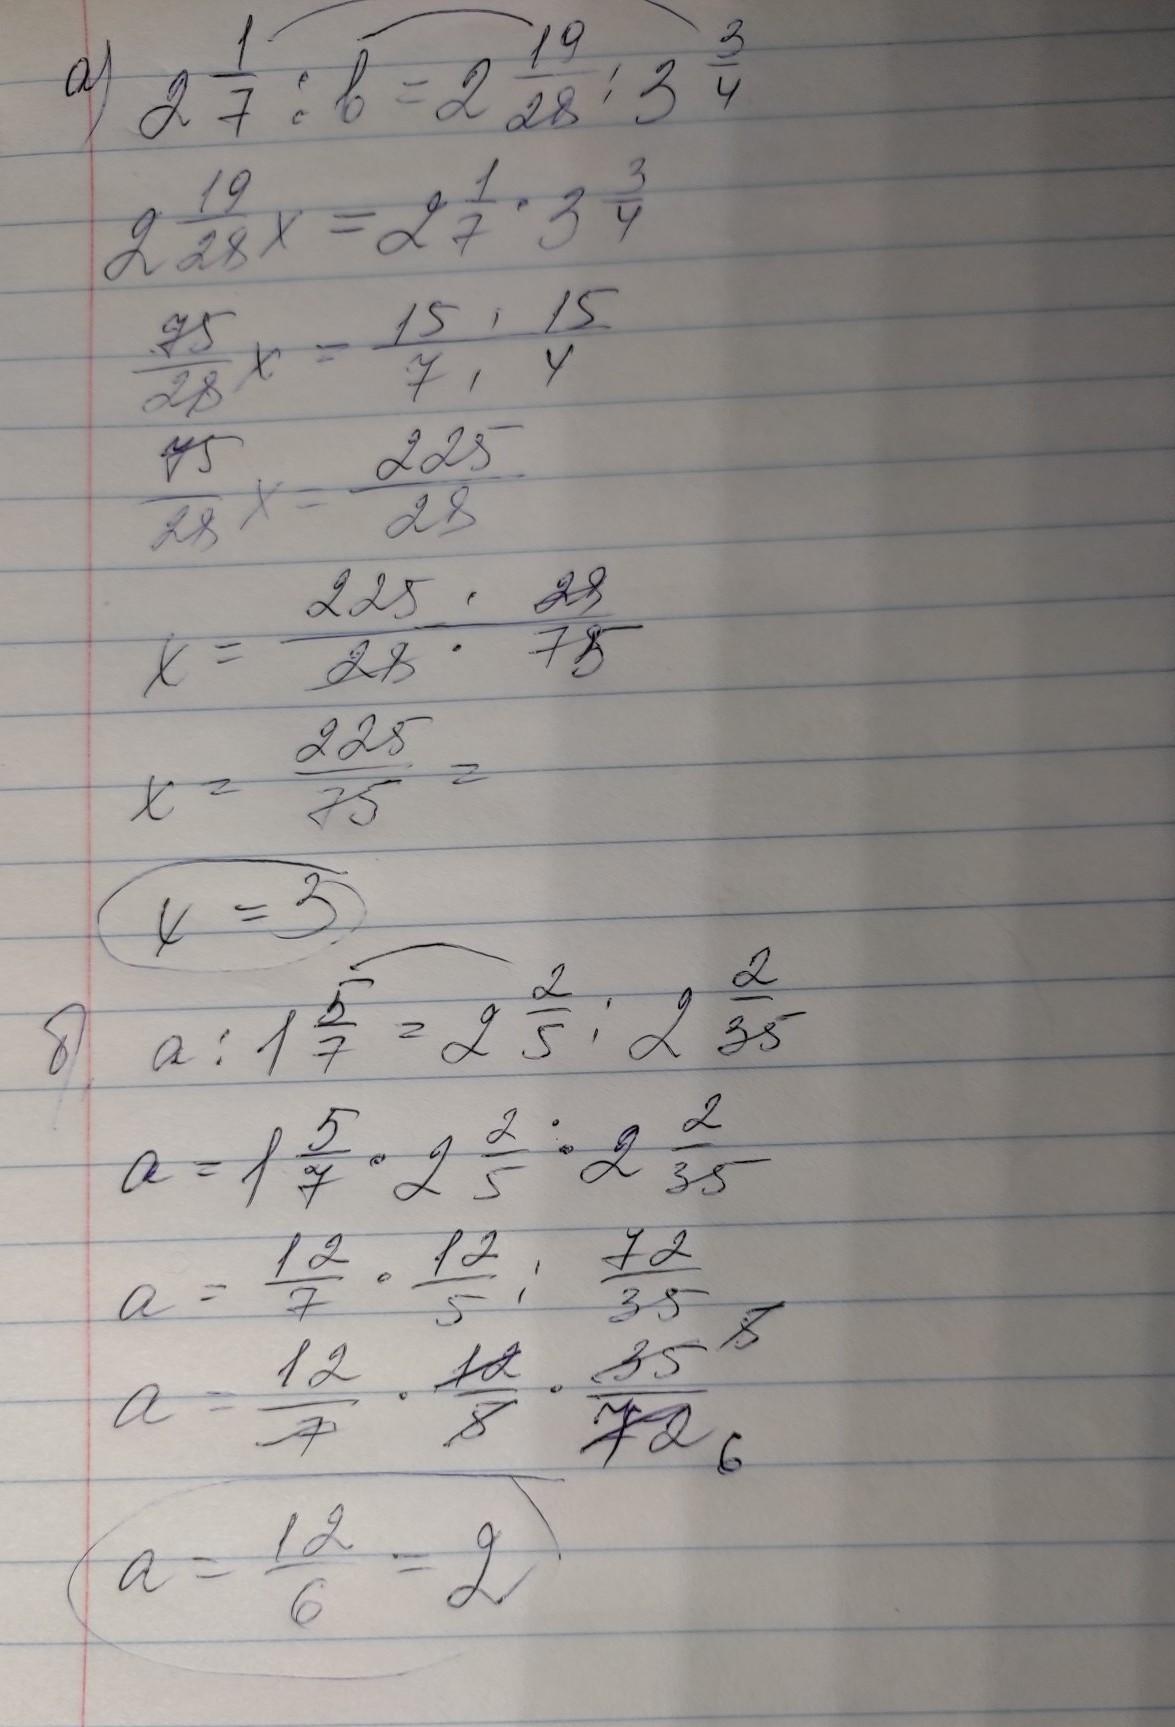 а) 2 1/7 : b = 2 19/28 : 3 3/4
2 19/28 x = 2 1/7 · 3 3/4
75/28 x = 15/7 · 15/4
75/28 x = 225/28
x = 225/28 · 28/75
x = 225/75 =
x = 3
б) a : 1 5/7 = 2 2/5 : 2 2/35
a = 1 5/7 · 2 2/5 : 2 2/35
a = 12/7 · 12/5 : 72/35
a = 12/7 · 12/5 · 35/72 5 6
a = 12/6 = 2